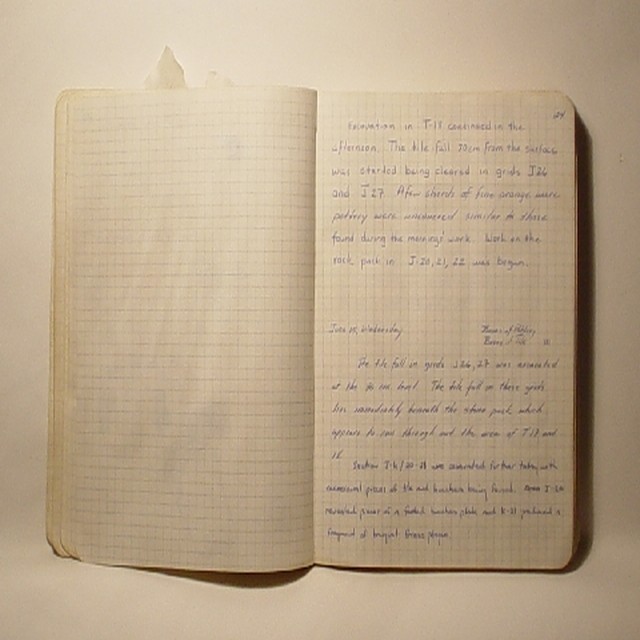 124
Excavation in T-18 continued in the
afternoon. The tile fall 70cm from the surface
was started being cleared in grids J26
and J27. A few sherds of fine orange ware
pottery were uncovered similar to those
found during the morning's work. Work on the
rock pack in J-20, 21, 22 was begun.
June 15, Wednesday
The tile fall in grids J26, 27 was excavated
at the 70 cm level. The tile fall in these grids
lies immediately beneath the stone pack which
appears to run through out the area of T-17 and
18.
Section J-K/20-21 was excavated further today with
occasional pieces of tile and bucchero being found.
revealed pieces of a footed bucchero plate and K-21 produced a
fragment of